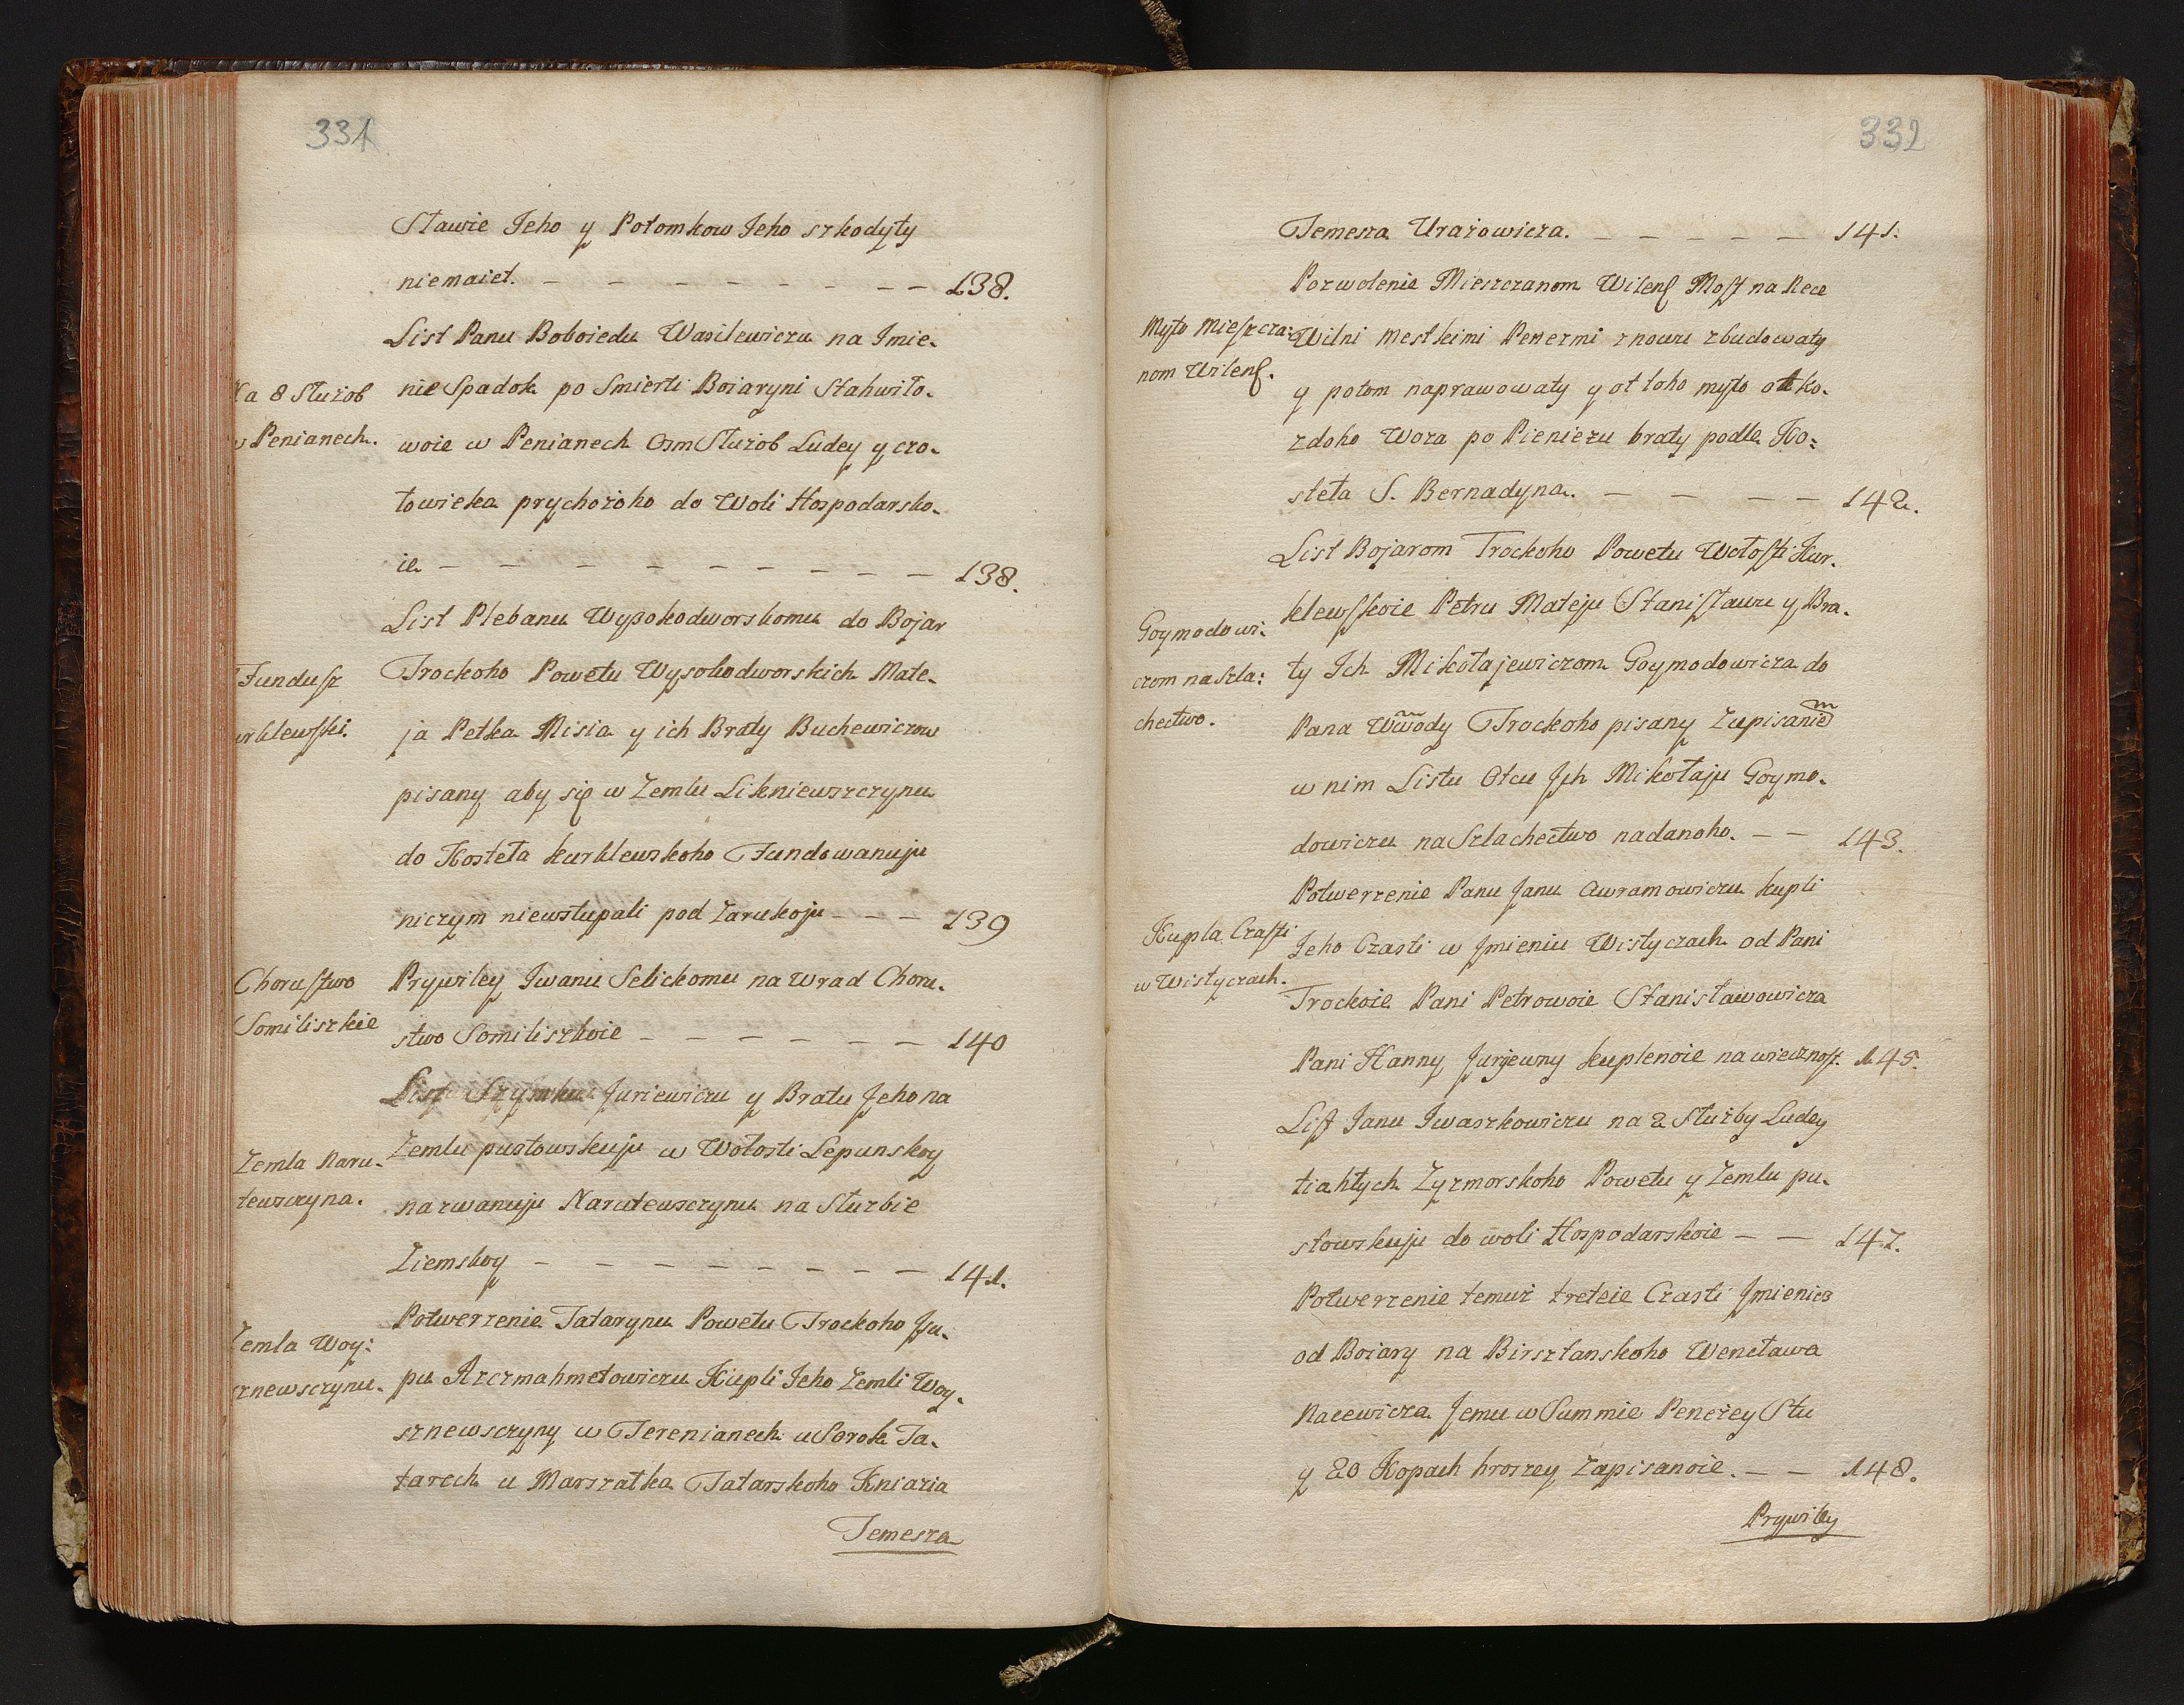 331
Sławie Jeho y Potomkow Jeho szkodyty
niemaiet. — — — — — — — — 138.
List Panu Boboiedu Wasilewiczu na Imie-
Na 8 Służob
w Penianech.
nie Spadok po Smierti Boiaryni Stahwiło-
woie w Penianech Osm Służob Ludey y czo-
łowieka prychożoho do Woli Hospodarsko-
ie — — — — — — — — 138.
List Plebanu Wysokodworskomu do Bojar
Fundusz
urklewski.
Trockoho Powetu Wysokodworskich Mate-
ja Petka Misia y ich Braty Buchewiczow
pisany aby się w Zemlu Likniewszczynu
do Kosteła kurklewskoho Fundowanuju
niczym niewstupali pod Zarukoju — — — 139
Chorustwo
Somiliszkie
Prywiley Iwanu Selickomu na Wrad Choru-
stwo Somiliszkoie — — — — — — 140
List Szymku Juriewiczu y Bratu Jeho na
Zemla Naru-
tewszczyna.
Zemlu pustowskuju w Wołosti Lepunskoy
nazwanuju Narutewszczynu na Służbie
Ziemskoy — — — — — — — — 141.
Potwerzenie Tatarynu Powetu Trockoho Ju-
Zemla Woy:
sznewsczynu.
pu Azczmahmetowiczu Kupli Jeho Zemli Woy-
sznewsczyny w Terenianech u Sorok Ta-
tarech u Marszałka Tatarskoho Kniazia
Temesza
332
Temesza Urazowicza. — — — — — 141.
Pozwolenie Mieszczanom Wilens Most na Rece
Myto Mieszcza:
nom Wilens.
Wilni Mestkimi Penezmi znowu zbudowaty
y potom naprawowaty y ot toho myto ot ko-
zdoho Woza po Pieniezu braty podle Ko:
steła S. Bernadyna. — — — — 142.
List Bojarom Trockoho Powetu Wołosti Kur-
Goymodowi:
czom na Szla:
chectwo.
klewskoie Petru Mateju Stanisławu y Bra-
ty Ich Mikołajewiczom Goymodowicza do
Pana Wwody Trockoho pisany Zupisaniem
w nim Listu Otcu Jch Mikołaju Goymo-
dowiczu na Szlachectwo nadanoho. — — 143.
Potwerzenie Panu Janu Awramowiczu kupli
Kupla Czasti
w Wistyczach.
Jeho Czasti w Jmieniu Wistyczach od Pani
Trockoie Pani Petrowoie Stanisławowicza
Pani Hanny Jurjewny kuplenoie na wiecznost. 145.
List Janu Iwaszkowiczu na 2 Służby Ludey
tiahłych Zyzmorskoho Powetu y Zemlu pu-
stowskuju do woli Hospodarskoie — — 147.
Potwerzenie temuż treteie Czasti Jmienica
od Boiary na Birsztanskoho Wencława
Nacewicza Jemu w Summie Penezey Stu
y 20 Kopach hroszey Zapisanoie. — — 148.
Prywiley